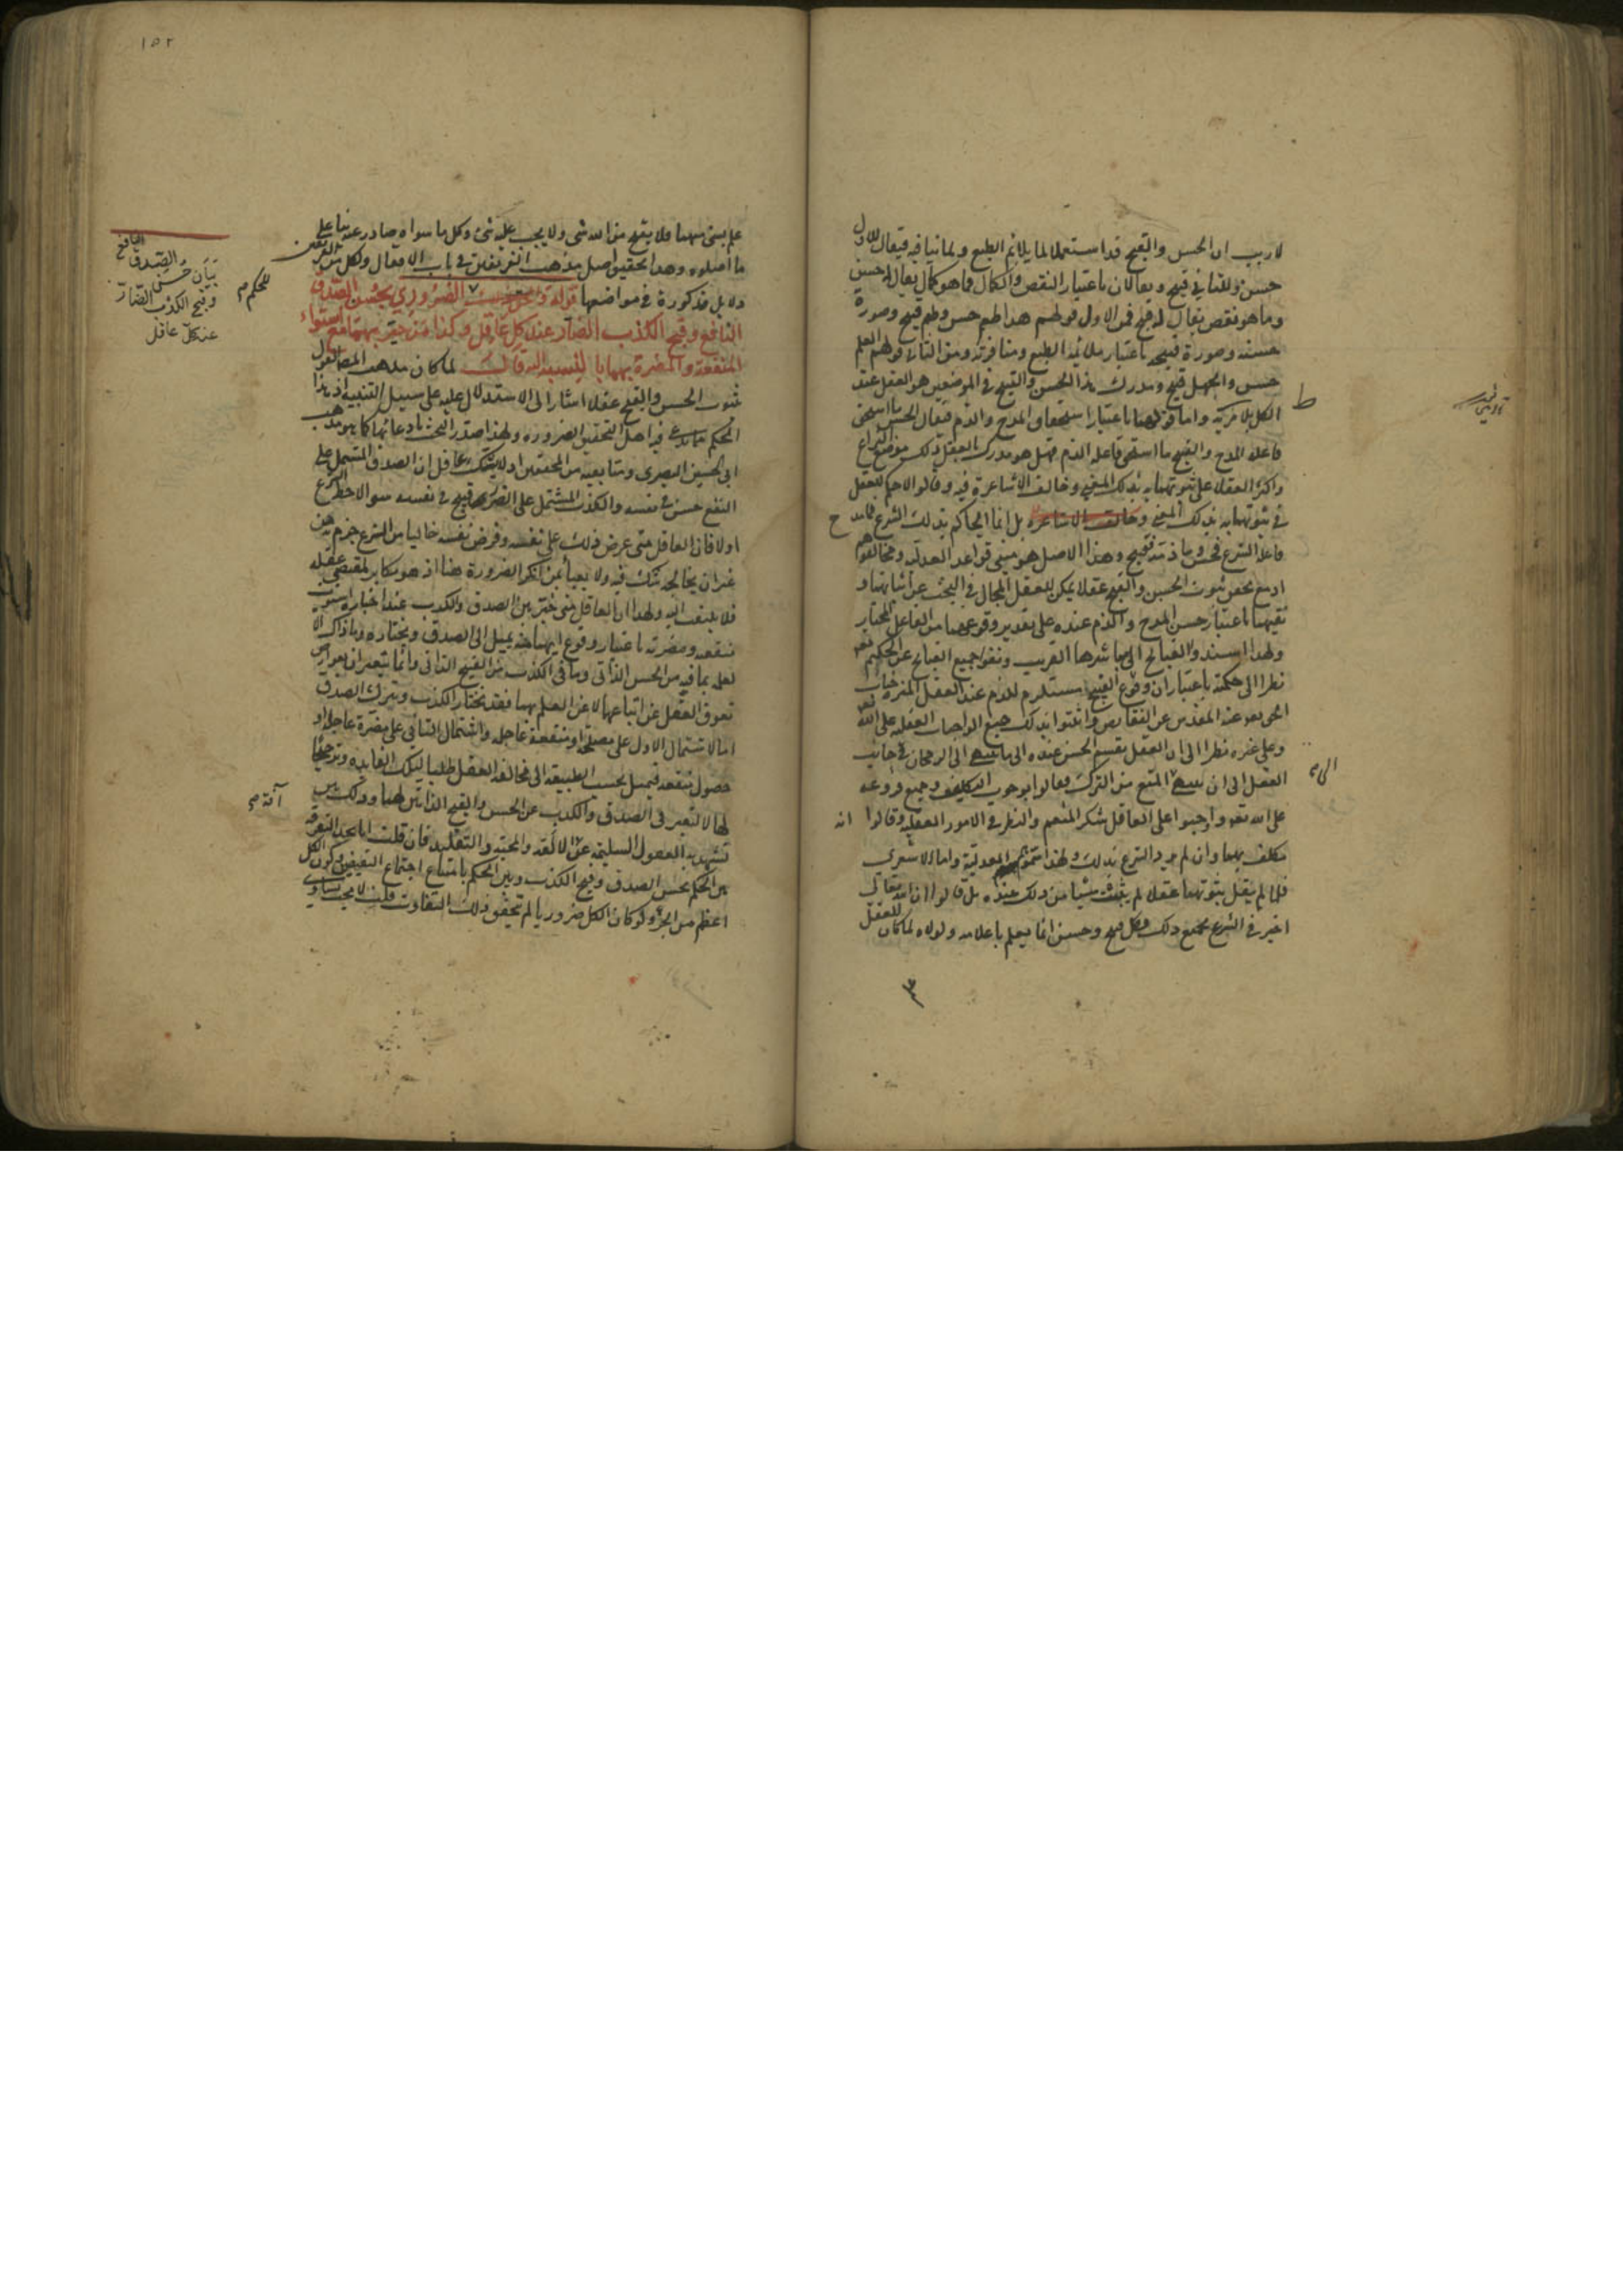 لا ريب ان الحسن والقبيح قد استعملا لما يلائم الطبع ولما ينافيه فيقال للاول
حسن وللثاني قبيح ويقالان باعتبار النقص والكمال فما هو كمال يقال له حسن
وما هو نقص يقال له قبيح فمن الاول قولهم هذا طعم حسن وطعم قبيح وصورة
حسنه وصورة قبيحه باعتبار ملائمه الطبع ومنافرته ومن الثاني قولهم العلم
حسن والجهل قبيح ومدرك هذا الحسن والقبح في الموضعين هو العقل عند
الكل بلا مريه واما باعتبار استحقاق المدح والذم فيقال الحسن ما استحق
فاعله المدح والقبيح ما استحق فاعله الذم فهل هو مدرك العقل ذلك موضع النزاع
واكثر العقلاء على ثبوتهما به بذلك المعنى وخالف الاشاعرة فيه وقالوا لا حكم للعقل
في ثبوتهما به بذلك المعنى وخالف الاشاعره بل انما الحاكم بذلك الشرع فما مدح
فاعله الشرع فحسن وما ذمه فقبيح وهذا الاصل هو مبنى قواعد العدليه ومخالفوهم
اذ مع تحقق ثبوت الحسن والقبح عقلا يمكن للعقل المجال في البحث عن اثباتهما و
نفيهما باعتبار حسن المدح والذم عنده على تقدير وقوعهما من الفاعل المختار
ولهذا اسندوا القبائح الى مباشرها القريب ونفوا جميع القبائح عن الحكيم تعه
نظرا الى حكمته باعتبار ان وقوع القبيح مستلزم للذم عند العقل المنزه جناب
الحق تعه عنه المقدس عن النقايص واثبتوا بذلك جميع الواجبات العقليه على الله تعه
وعلى غيره نظرا الى ان العقل يقسم الحسن عنده الى ما ينتهي الى الرجحان في جانب
الفعل الى ان ينتهي الى المنع من الترك فقالوا بوجوب التكليف وجميع فروعه
على الله تعه واوجبوا على العاقل شكر المنعم والنظر في الامور العقليه وقالوا انه
مكلف بهما وان لم يرد الشرع بذلك ولهذا سموهم العدلية واما الاشعري
فلما لم يقل بثبوتهما عقلا لم يثبت شيئا من ذلك عنده بل قالوا ان الله تعالى
اخبر في الشرع بجميع ذلك وكل قبيح وحسن انما يعلم باعلامه ولولاه لما كان للعقل
الى م
١٥٢
علم بشئ منهما فلا يقبح من الله شئ ولا يجب عليه شئ وكل ما سواه صادر عنه بناء على
ما اصلوه وهذا التحقيق اصل مذهب الفريقين في باب الافعال ولكل من الفريقين
دلايل مذكورة في مواضعها قوله الضروري بحسن الصدق
النافع وقبح الكذب الضار عند كل عاقل وكذا من خير بهما مع استواء
المنفعة والمضرة بهما بالنسبه اليه قال لما كان مذهب المص القول
بثبوت الحسن والقبح عقلا اشار الى الاستدلال عليه على سبيل التنبيه اذ هذا
الحكم مما يدعى فيه اهل التحقيق الضروره ولهذا صدر البحث بادعائها كما هو مذهب
ابي الحسين البصري ومتابعيه من المحققين اذ لا يشك عاقل ان الصدق المشتمل على
النفع حسن في نفسه والكذب المشتمل على الضرر قبيح في نفسه سواء لاحظ الشرع
اولا فان العاقل متى عرض ذلك على نفسه وفرض نفسه خاليا من الشرع جزم به من
غير ان يخالجه شك فيه ولا يعبأ بمن انكر الضرورة هنا اذ هو مكابر لمقتضى عقله
فلا يلتفت اليه ولهذا ان العاقل متى خير بين الصدق والكذب عند اخباره استوت
منفعته ومضرته باعتبار وقوع ايهما منه يميل الى الصدق ويختاره وما ذاك الا
لعلمه بما فيه من الحسن الذاتي وما في الكذب من القبيح الذاتي وانما يتغيران بعوارض
تعوق العقل عن اتباعهما لا عن العلم بهما فقد يختار الكذب ويترك الصدق
اما لاشتمال الاول على مصلحة او منفعة عاجله واشتمال الثاني على مضرة عاجله او
حصول منفعه فيميل بحسب الطبيعة الى مخالفه العقل طلبا لتلك الفايده وترجيحا
لها لا لتغير في الصدق والكذب عن الحسن والقبح الذاتيين لهما وذلك بين
تشهد به العقول السليمه عن الالفه والمحبه والتقليد فان قلت انا نجد التفرقه
بين الحكم بحسن الصدق وقبح الكذب وبين الحكم بامتناع اجتماع النقيضين وكون الكل
اعظم من الجزء ولو كان الكل ضروريا لم يتحقق ذلك التفاوت قلت لا يجب تساوي
للحكم م
بيان حسن الصدق النافع
وقبح الكذب الضار
عند كل عاقل
آفة م